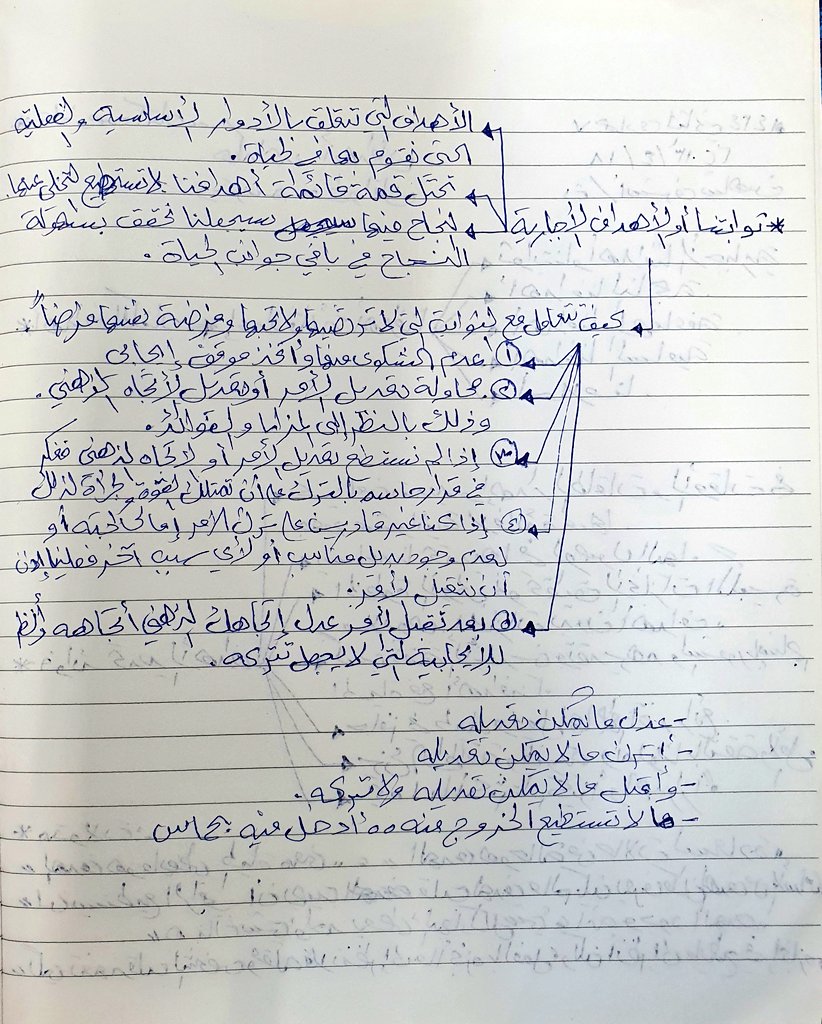 الأهداف التي تتعلق بالأدوار الأساسية والفعلية
التي نقوم بها في الحياة.
تحتل قمة قائمة أهدافنا لا نستطيع التخلي عنها.
* ثوابتنا أو الأهداف الإجبارية
النجاح فيها سيجعلنا نحقق بسهولة
النجاح في باقي جوانب الحياة.
كيف نتعامل مع الثوابت التي لا نرتضيها ولا نحبها ومفروضة علينا فرضاً
① عدم الشكوى منها وأخذ موقف إيجابي
② محاولة تعديل الأمر أو تعديل الأتجاه الذهني.
وذلك بالنظر إلى المزايا والفوائد.
③ إذا لم نستطع تعديل الأمر أو الاتجاه الذهني ففكر
في قرار حاسم بالترك على أن تمتلك القوة والجرأة لذلك
④ إذا كنا غير قادرين على ترك الأمر إما لمحبته أو
لعدم وجود بديل مناسب أو لأي سبب آخر فعلينا إذن
أن نتقبل الأمر.
⑤ بعد تقبل الأمر عدل إتجاهك الذهني أتجاهه وأنظر
للإيجابية التي لا تتركه.
- عدل ما يمكن تعديله
- أترك ما لا يمكن تعديله
- وأقبل ما لا يمكن تعديله ولا تتركه.
- ما لا تستطيع الخروج منه أدخل فيه بحماس